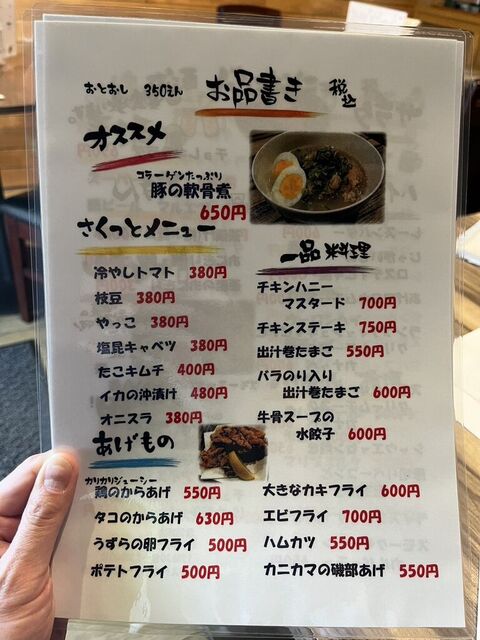 おとおし 350えん お品書き 税込
オススメ
コラーゲンたっぷり
豚の軟骨煮
650円
さくっとメニュー
冷やしトマト 380円
枝豆 380円
やっこ 380円
塩昆キャベツ 380円
たこキムチ 400円
イカの沖漬け 480円
オニスラ 380円
一品料理
チキンハニー
マスタード 700円
チキンステーキ 750円
出汁巻たまご 550円
バラのり入り
出汁巻たまご 600円
牛骨スープの
水餃子 600円
あげもの
カリカリジューシー
鶏のからあげ 550円
タコのからあげ 630円
うずらの卵フライ 500円
ポテトフライ 500円
大きなカキフライ 600円
エビフライ 700円
ハムカツ 550円
カニカマの磯部あげ 550円